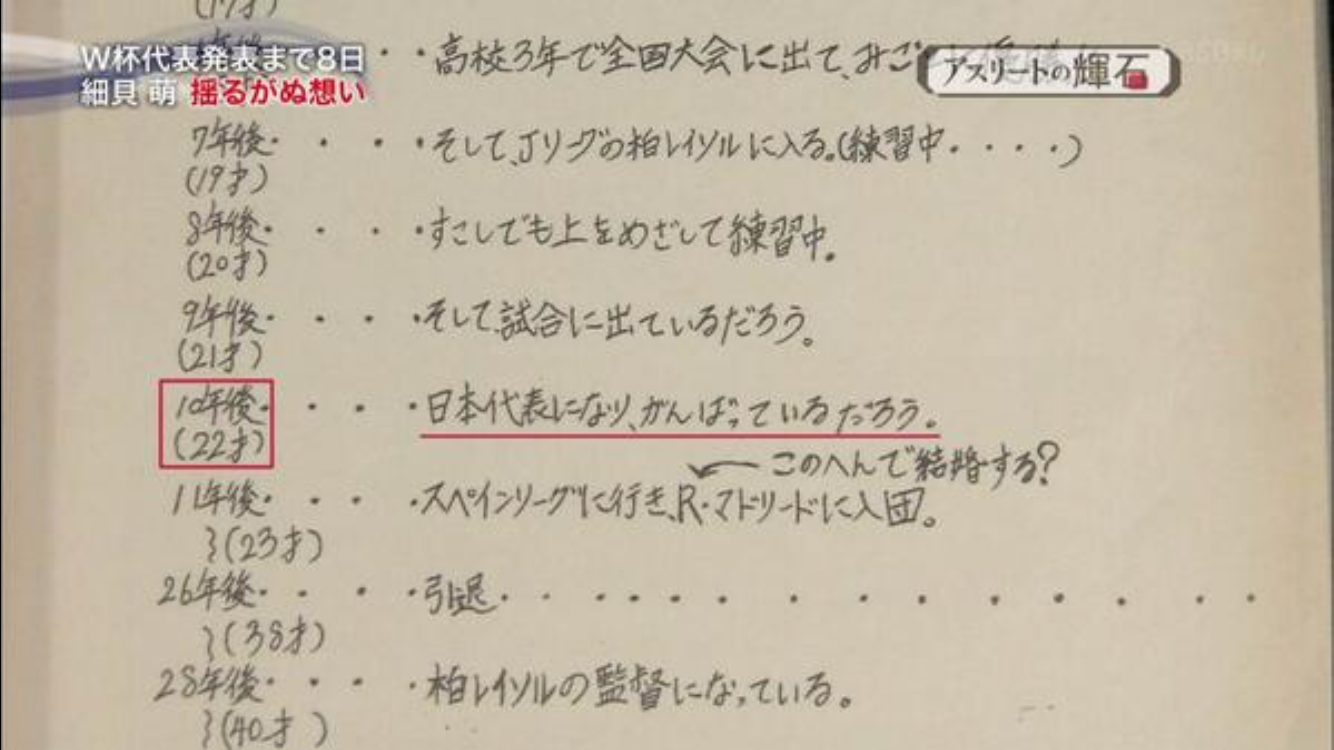 (17才)
W杯代表発表まで8日
細貝 萌 揺るがぬ想い
アスリートの輝石
・・高校3年で全国大会に出て、みごと
7年後・・・・・そして、Jリーグの柏レイソルに入る。(練習中・・・・)
(19才)
8年後・・・・すこしでも上をめざして練習中。
(20才)
9年後・・・・そして、試合に出ているだろう。
(21才)
10年後・・・・日本代表になり、がんばっているだろう。
(22才)
←このへんで結婚する?
11年後・・・・スペインリーグに行き、R・マドリードに入団。
}(23才)
26年後・・・・引退・・・・・・・・・・・・・・・
}(38才)
28年後・・・・柏レイソルの監督になっている。
}(40才)